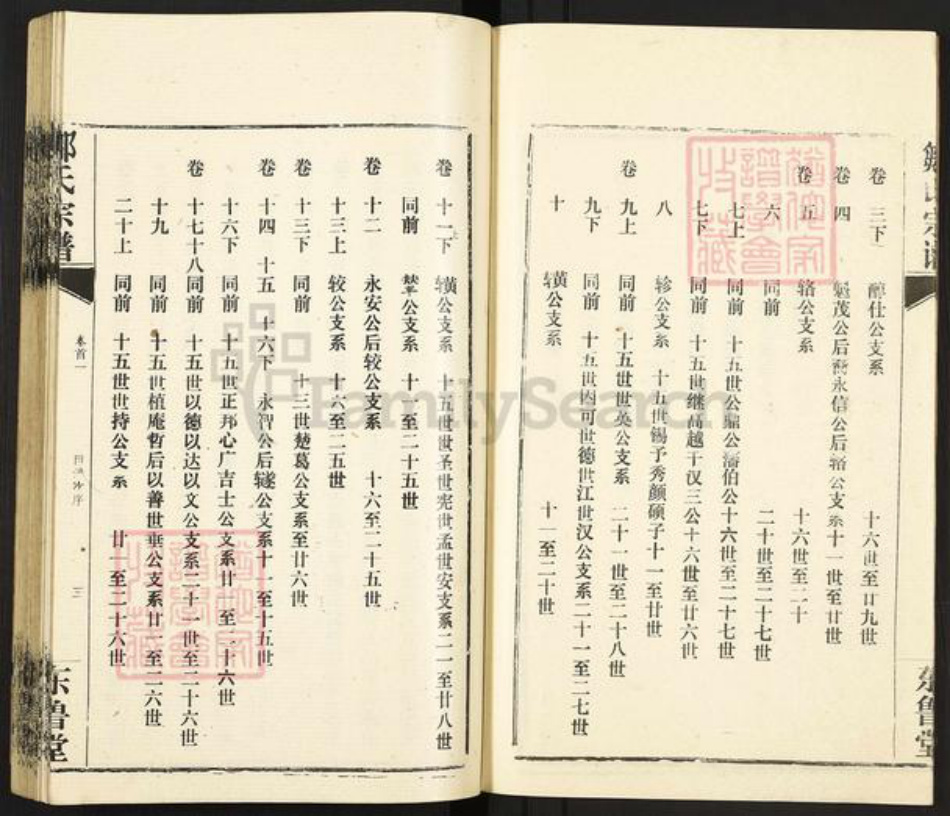 卷 三下 醇仕公支系 十六世至廿九世
卷 四 魁茂公后裔永信公后辂公支系十一世至廿世
卷 五 辂公支系 十六世至二十
六 同前 二十世至二十七世
七上 同前 十五世公鼎公藩伯公十六世至二十七世
七下 同前 十五世继高越千汉三公十六世至廿六世
八 轸公支系 十五世锡予秀颜硕子十一至廿世
卷 九上 同前 十五世世英公支系 二十一世至二十八世
九下 同前 十五世因可世德世江世汉公支系二十一至二七世
十 公支系 十一至二十世
东鲁堂
卷 十一下 公支系 十五世世圣世宪世孟世安支系二一至廿八世
同前 公支系 十一至二十五世
卷 十二 永安公后较公支系 十六至二十五世
十三上 较公支系 十六至二五世
卷 十三下 同前 十三世楚葛公支系至廿六世
卷 十四 十五 十六下 永智公后公支系十一至十五世
十六下 同前 十五世正邦心广吉士公支系廿一至二十六世
卷 十七十八 同前 十五世以德以达以文公支系二十一世至二十六世
十九 同前 十五世植庵哲后以善世垂公支系廿一至二六世
二十上 同前 十五世世持公支系 廿一至二十六世
氏宗谱
卷首一
三
东鲁堂
FamilySearch